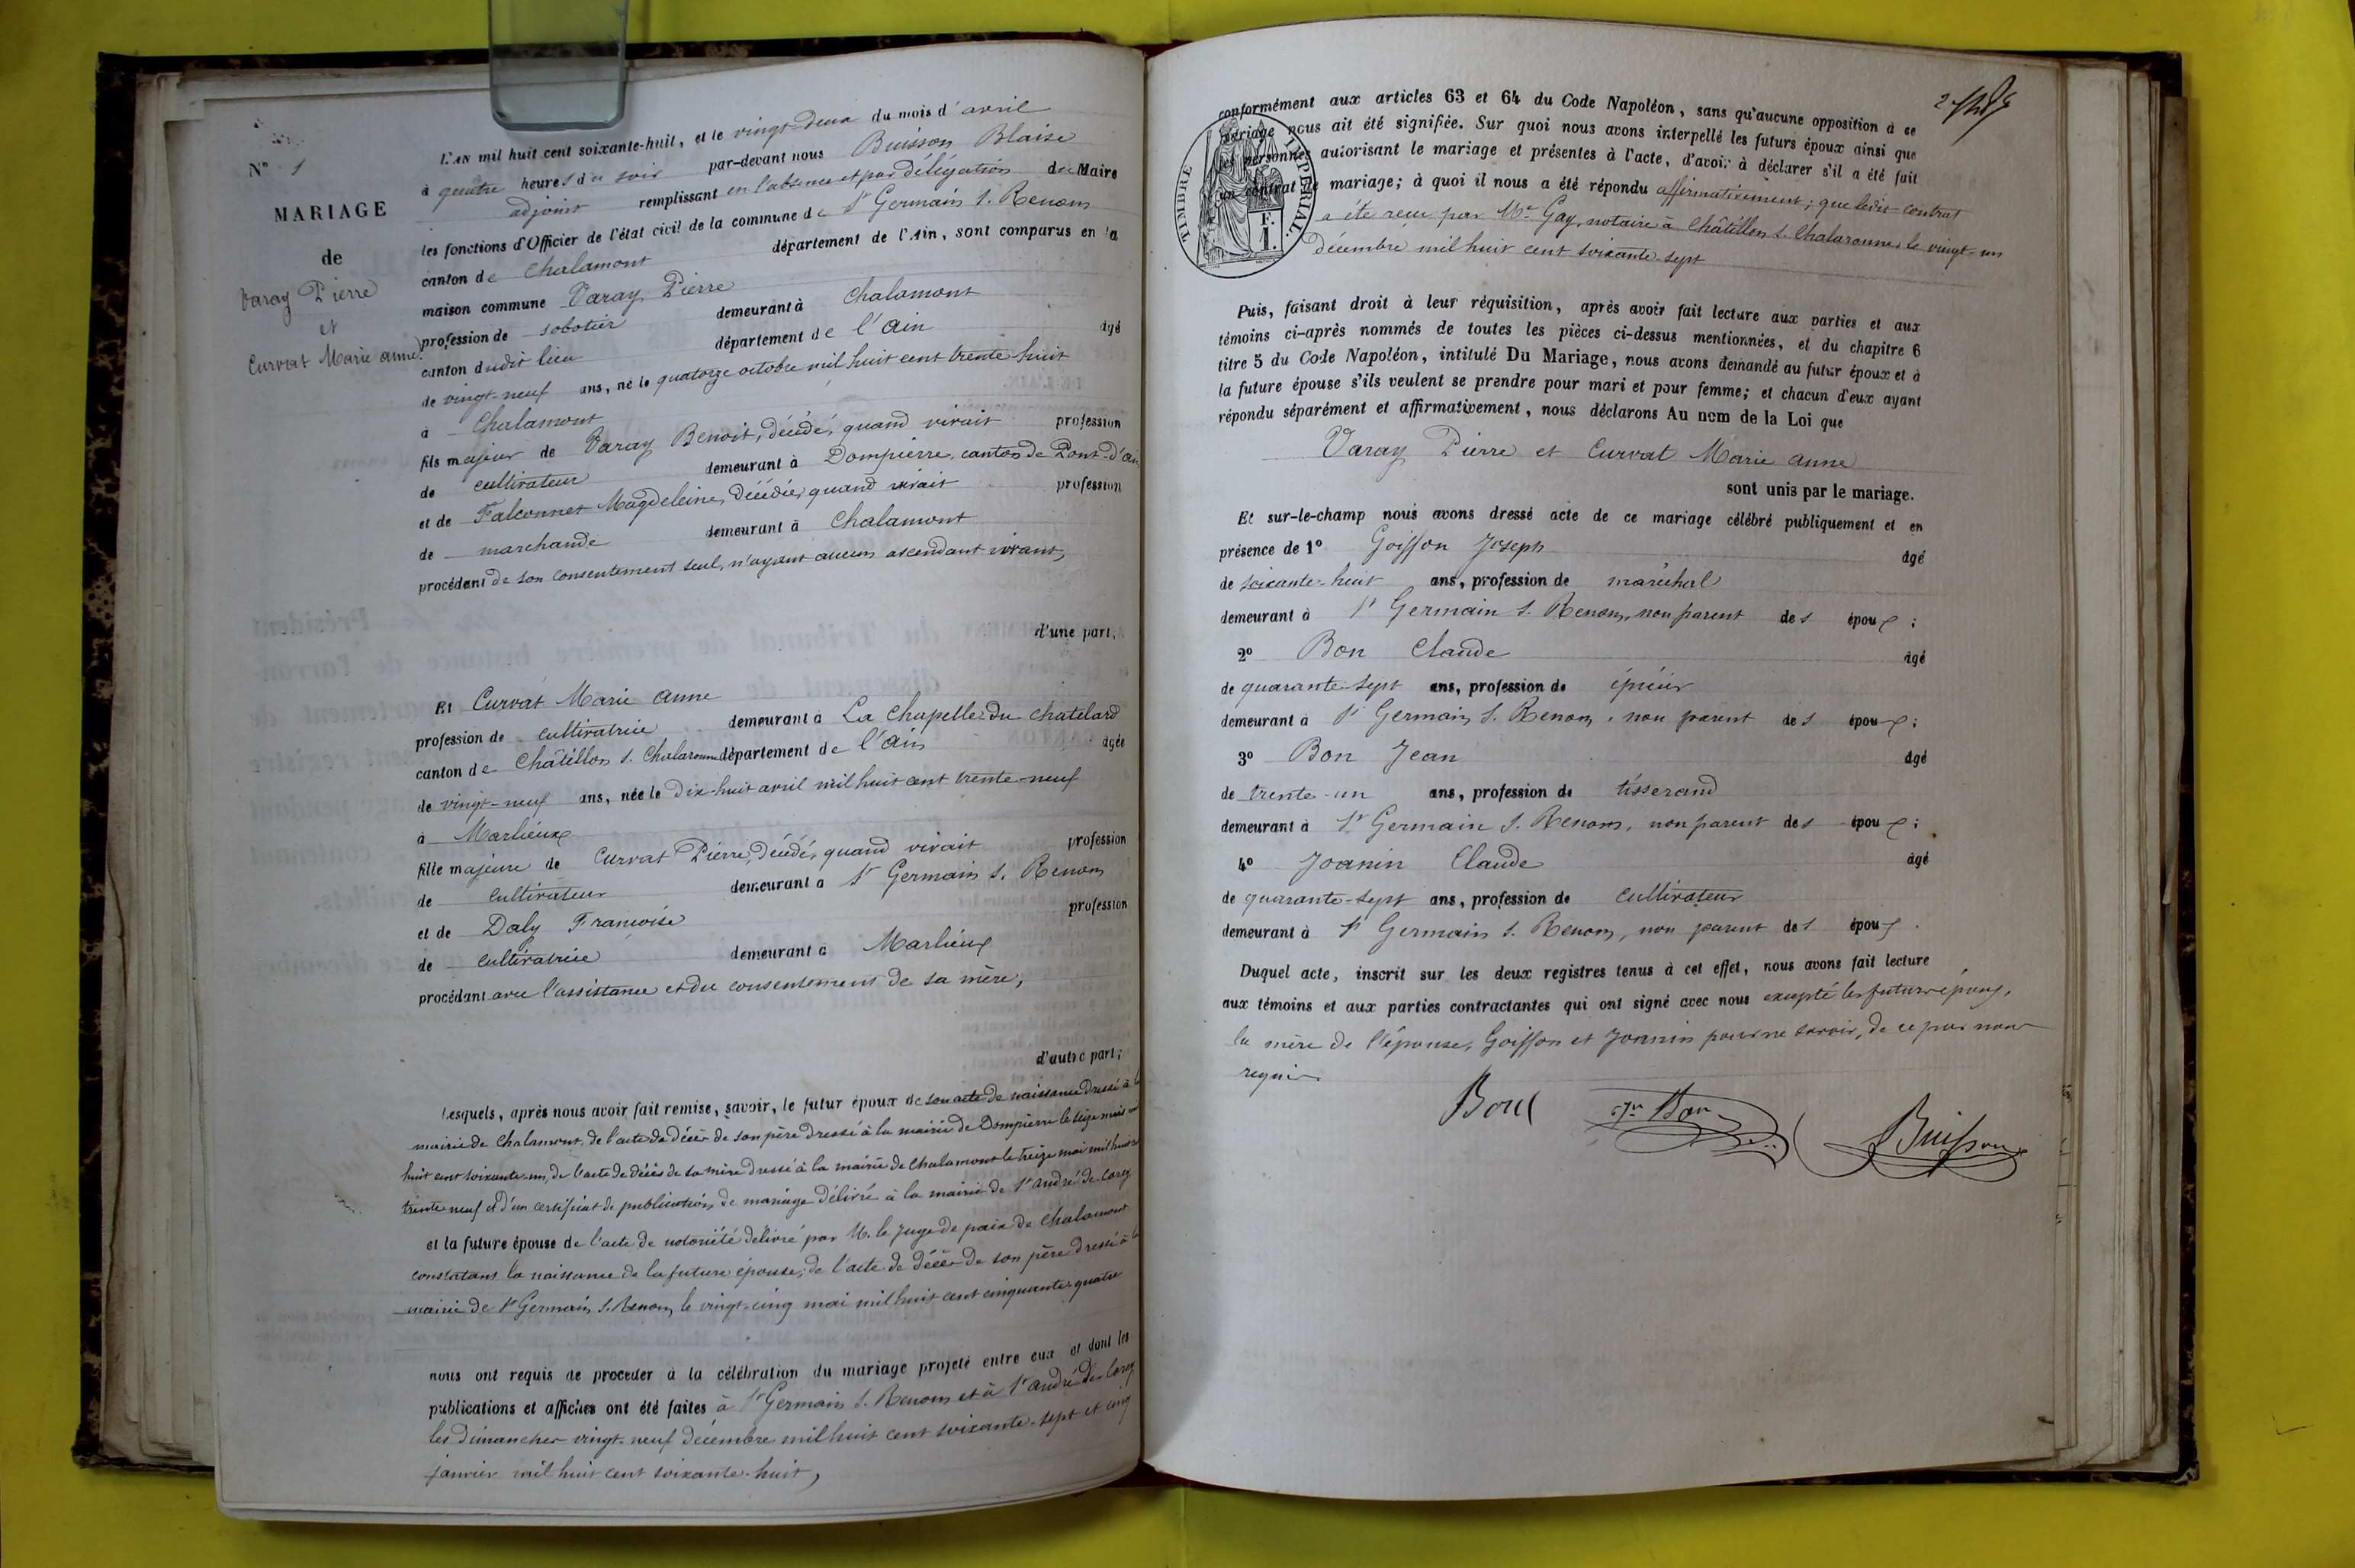 N° 1
MARIAGE
de
Varay Pierre
et
Curvat Marie anne.
L'AN mil huit cent soixante-huit, et le vingt-deux du mois d'avril
à quatre heures du soir par-devant nous Buisson Blaise
adjoint remplissant en l'absence et par délégation du Maire
les fonctions d'Officier de l'état civil de la commune de St Germain s. Renom
canton de Chalamont département de l'Ain, sont comparus en la
maison commune Varay Pierre
profession de sabotier demeurant à Chalamont
canton dudit lieu département de l'ain âgé
de vingt-neuf ans, né le quatorze octobre mil huit cent trente-huit
à Chalamont
fils majeur de Varay Benoit, décédé, quand vivait profession
de cultivateur demeurant à Dompierre, canton de Pont-d'ain
et de Falconnet Magdeleine, décédée, quand vivait profession
de marchande demeurant à Chalamont
procédant de son consentement seul, n'ayant aucun ascendant vivant,
d'une part,
Et Curvat Marie anne
profession de cultivatrice demeurant à La Chapelle du Chatelard
canton de Châtillon s. Chalaronne département de l'ain âgée
de vingt-neuf ans, née le dix-huit avril mil huit cent trente-neuf
à Marlieux
fille majeure de Curvat Pierre, décédé, quand vivait profession
de cultivateur demeurant à St Germain s. Renom
et de Daly Francoise profession
de cultivatrice demeurant à Marlieux
procédant avec l'assistance et du consentement de sa mère,
d'autre part;
Lesquels, après nous avoir fait remise, savoir, le futur époux de son acte de naissance dressé à la
mairie de Chalamont, de l'acte de décès de son père dressé à la mairie de Dompierre le seize mars mil
huit cent soixante-un, de l'acte de décès de sa mère dressé à la mairie de Chalamont le treize mai mil huit cent
trente neuf et d'un certificat de publication de mariage délivré à la mairie de St andré-de-Corcy
et la future épouse de l'acte de notoriété délivré par M. le juge de paix de Chalamont
constatant la naissance de la future épouse, de l'acte de décès de son père dressé à la
mairie de St Germain s. Renom le vingt-cinq mai mil huit cent cinquante-quatre
nous ont requis de procéder à la célébration du mariage projeté entre eux et dont les
publications et affiches ont été faites à St Germain s. Renom et à St andré de Corcy
les dimanches vingt-neuf décembre mil huit cent soixante-sept et cinq
janvier mil huit cent soixante-huit,
2
TIMBRE IMPÉRIAL.
F.
1.
conformément aux articles 63 et 64 du Code Napoléon, sans qu'aucune opposition à ce
mariage nous ait été signifiée. Sur quoi nous avons interpellé les futurs époux ainsi que
les personnes autorisant le mariage et présentes à l'acte, d'avoir à déclarer s'il a été fait
un contrat de mariage; à quoi il nous a été répondu affirmativement; que ledit contrat
a été reçu par Me Gay, notaire à Châtillon s. Chalaronne le vingt-un
décembre mil huit cent soixante-sept
Puis, faisant droit à leur réquisition, après avoir fait lecture aux parties et aux
témoins ci-après nommés de toutes les pièces ci-dessus mentionnées, et du chapitre 6
titre 5 du Code Napoléon, intitulé Du Mariage, nous avons demandé au futur époux et à
la future épouse s'ils veulent se prendre pour mari et pour femme; et chacun d'eux ayant
répondu séparément et affirmativement, nous déclarons Au nom de la Loi que
Varay Pierre et Curvat Marie anne
sont unis par le mariage.
Et sur-le-champ nous avons dressé acte de ce mariage célébré publiquement et en
présence de 1° Goiffon Joseph âgé
de soixante-huit ans, profession de maréchal
demeurant à St Germain s. Renom, non parent des époux;
2° Bon Claude âgé
de quarante-sept ans, profession de épicier
demeurant à St Germain s. Renom, non parent des époux;
3° Bon Jean âgé
de trente-un ans, profession de tisserand
demeurant à St Germain s. Renom, non parent des époux;
4° Joanin Claude âgé
de quarante-sept ans, profession de cultivateur
demeurant à St Germain s. Renom, non parent des époux.
Duquel acte, inscrit sur les deux registres tenus à cet effet, nous avons fait lecture
aux témoins et aux parties contractantes qui ont signé avec nous excepté les futurs époux,
la mère de l'épouse, Goiffon et Joanin pour ne savoir, de ce par nous
requis.
Bon Jn Bon Buisson